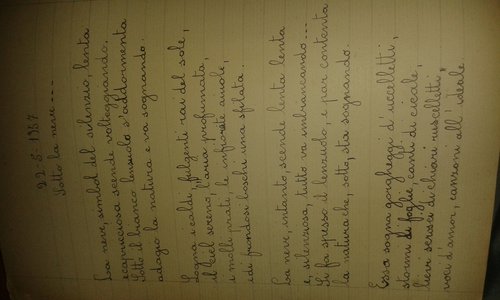 22-5-1957
Sotto la neve....
La neve, simbol del silenzio, lenta
e capricciosa scende volteggiando.
Sotto il bianco lenzuolo s'addormenta
adagio la natura e va sognando.
Sogna i caldi, fulgenti rai del sole,
il ciel sereno, l'aria profumata,
i molli prati, le infiorate aiuole,
e di frondosi boschi una sfilata.
La neve, intanto, scende lenta lenta
e, silenziosa, tutto va imbiancando...
Si fa spesso il lenzuolo, e par contenta
la natura che, sotto, sta sognando.
Essa sogna gorgheggi d'uccelletti,
stormi di foglie, canti di cicale,
lievi scrosci di chiari ruscelletti,
voci d'amor, canzoni all'ideale.